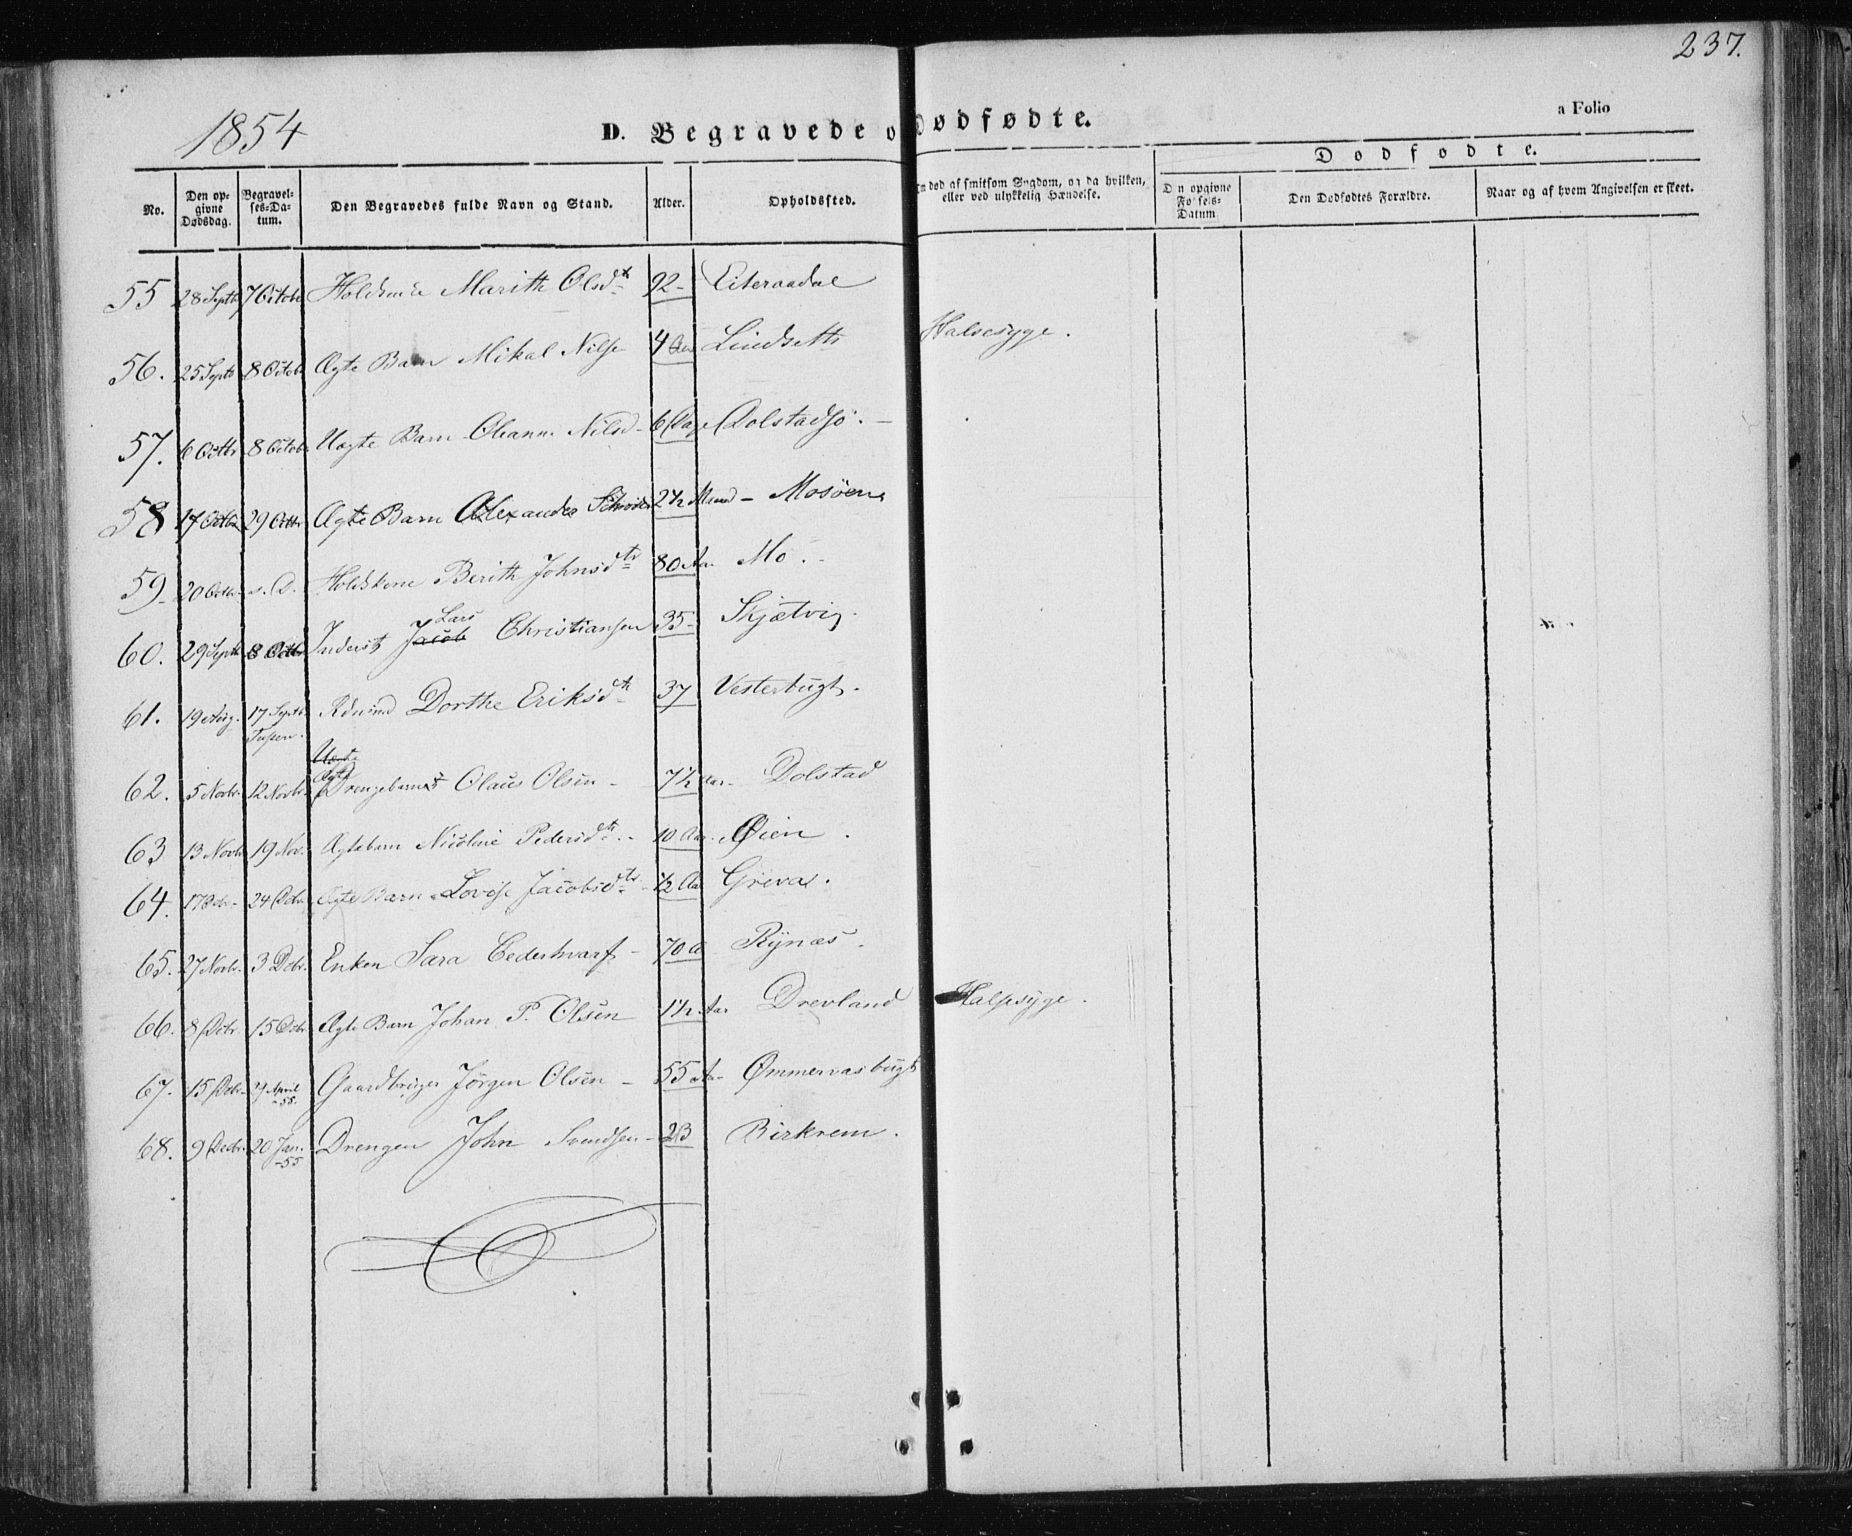 237.
1854
D. Begravede o dødfødte.
a Folio
Dødfødte.
No.
Den opgivne Dødsdag.
Begravelses-Datum.
Den Begravedes fulde Navn og Stand.
Alder.
Opholdssted.
død af smitsom Sygdom, og da hvilken, eller ved ulykkelig Hændelse.
D n opgivne Fo sels-Datum
Den Dødfødtes Forældre.
Naar og af hvem Angivelsen er skeet.
55 28 Septb 7 Octob Marith Olsdtr 92-
56. 25 Septb 8 Octob Ægte Barn Mikal Nilss 4 Lindsetts Halsesyge.
57. 6 Octbr 8 Octob Uægte Barn Nilsd- 6 Dage Dolstadsjö.
58 17 Octbr 29 Octbr Ægte Barn Alexander Schrøder 2½ Maaned - Mosöen
59. 20 Octbr s. D. Berith Johnsdtr 80 Aar Mo.
60. 29 Septb 8 Octbr Inderst Jacob Lars Christiansen 35- Skjætvig.
61. 19 Aug. 17 Septb Dorthe Eriksdtr 37 Vesterbugt.
62. 5 Novbr. 12 Novbr. Uægte Ægte Drengebarn Olaus Olsen - 7½ Aar. Dolstad
63 13 Novbr 19 Nov. Ægtebarn Nicoline Pedersdtr. 10 Aar. Øien.
64. 17 Dcbr- 24 Dcbr. Ægte Barn Lovise Jacobsdtr ½ Aar Grevas.
65. 27 Novbr. 3 Dcbr. Enken Sara Cedershvarf - 70 A Rynæs.
66. 8 Dcbr 15 Dcbr Ægte Barn Johan P. Olsen 1½ Aar Drevland Halssyge.
67. 15 Dcbr- 29 April -55. Gaardbruger Jörgen Olsen - 55 A- Ømmervasbugt
68. 9 Decbr 20 Jan. -55 Drengen John Svendsen - 23 Birkrem.